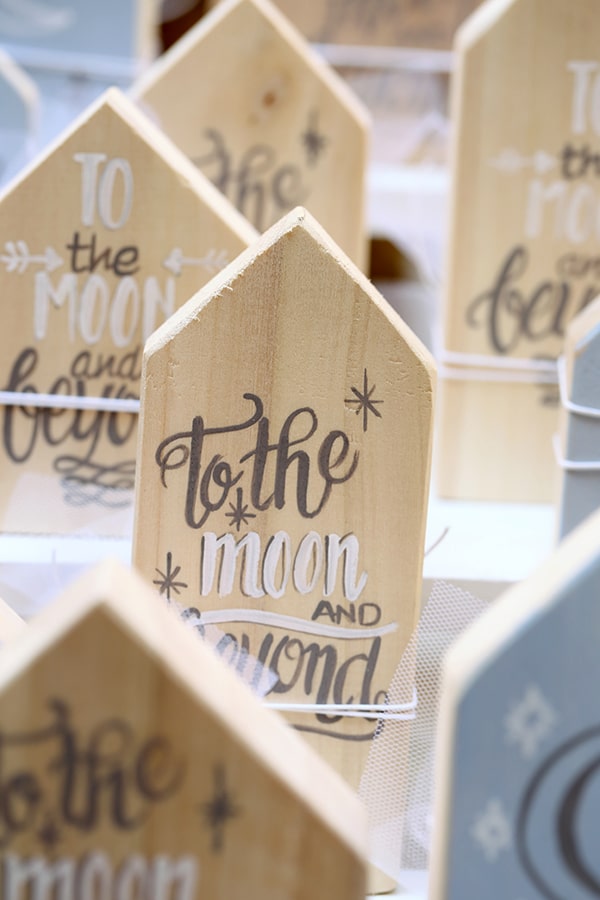 To the
moon
AND
beyond
TO
the
MOON
and
beyo
the
TO
the
MOO
an
bey
to the
moon